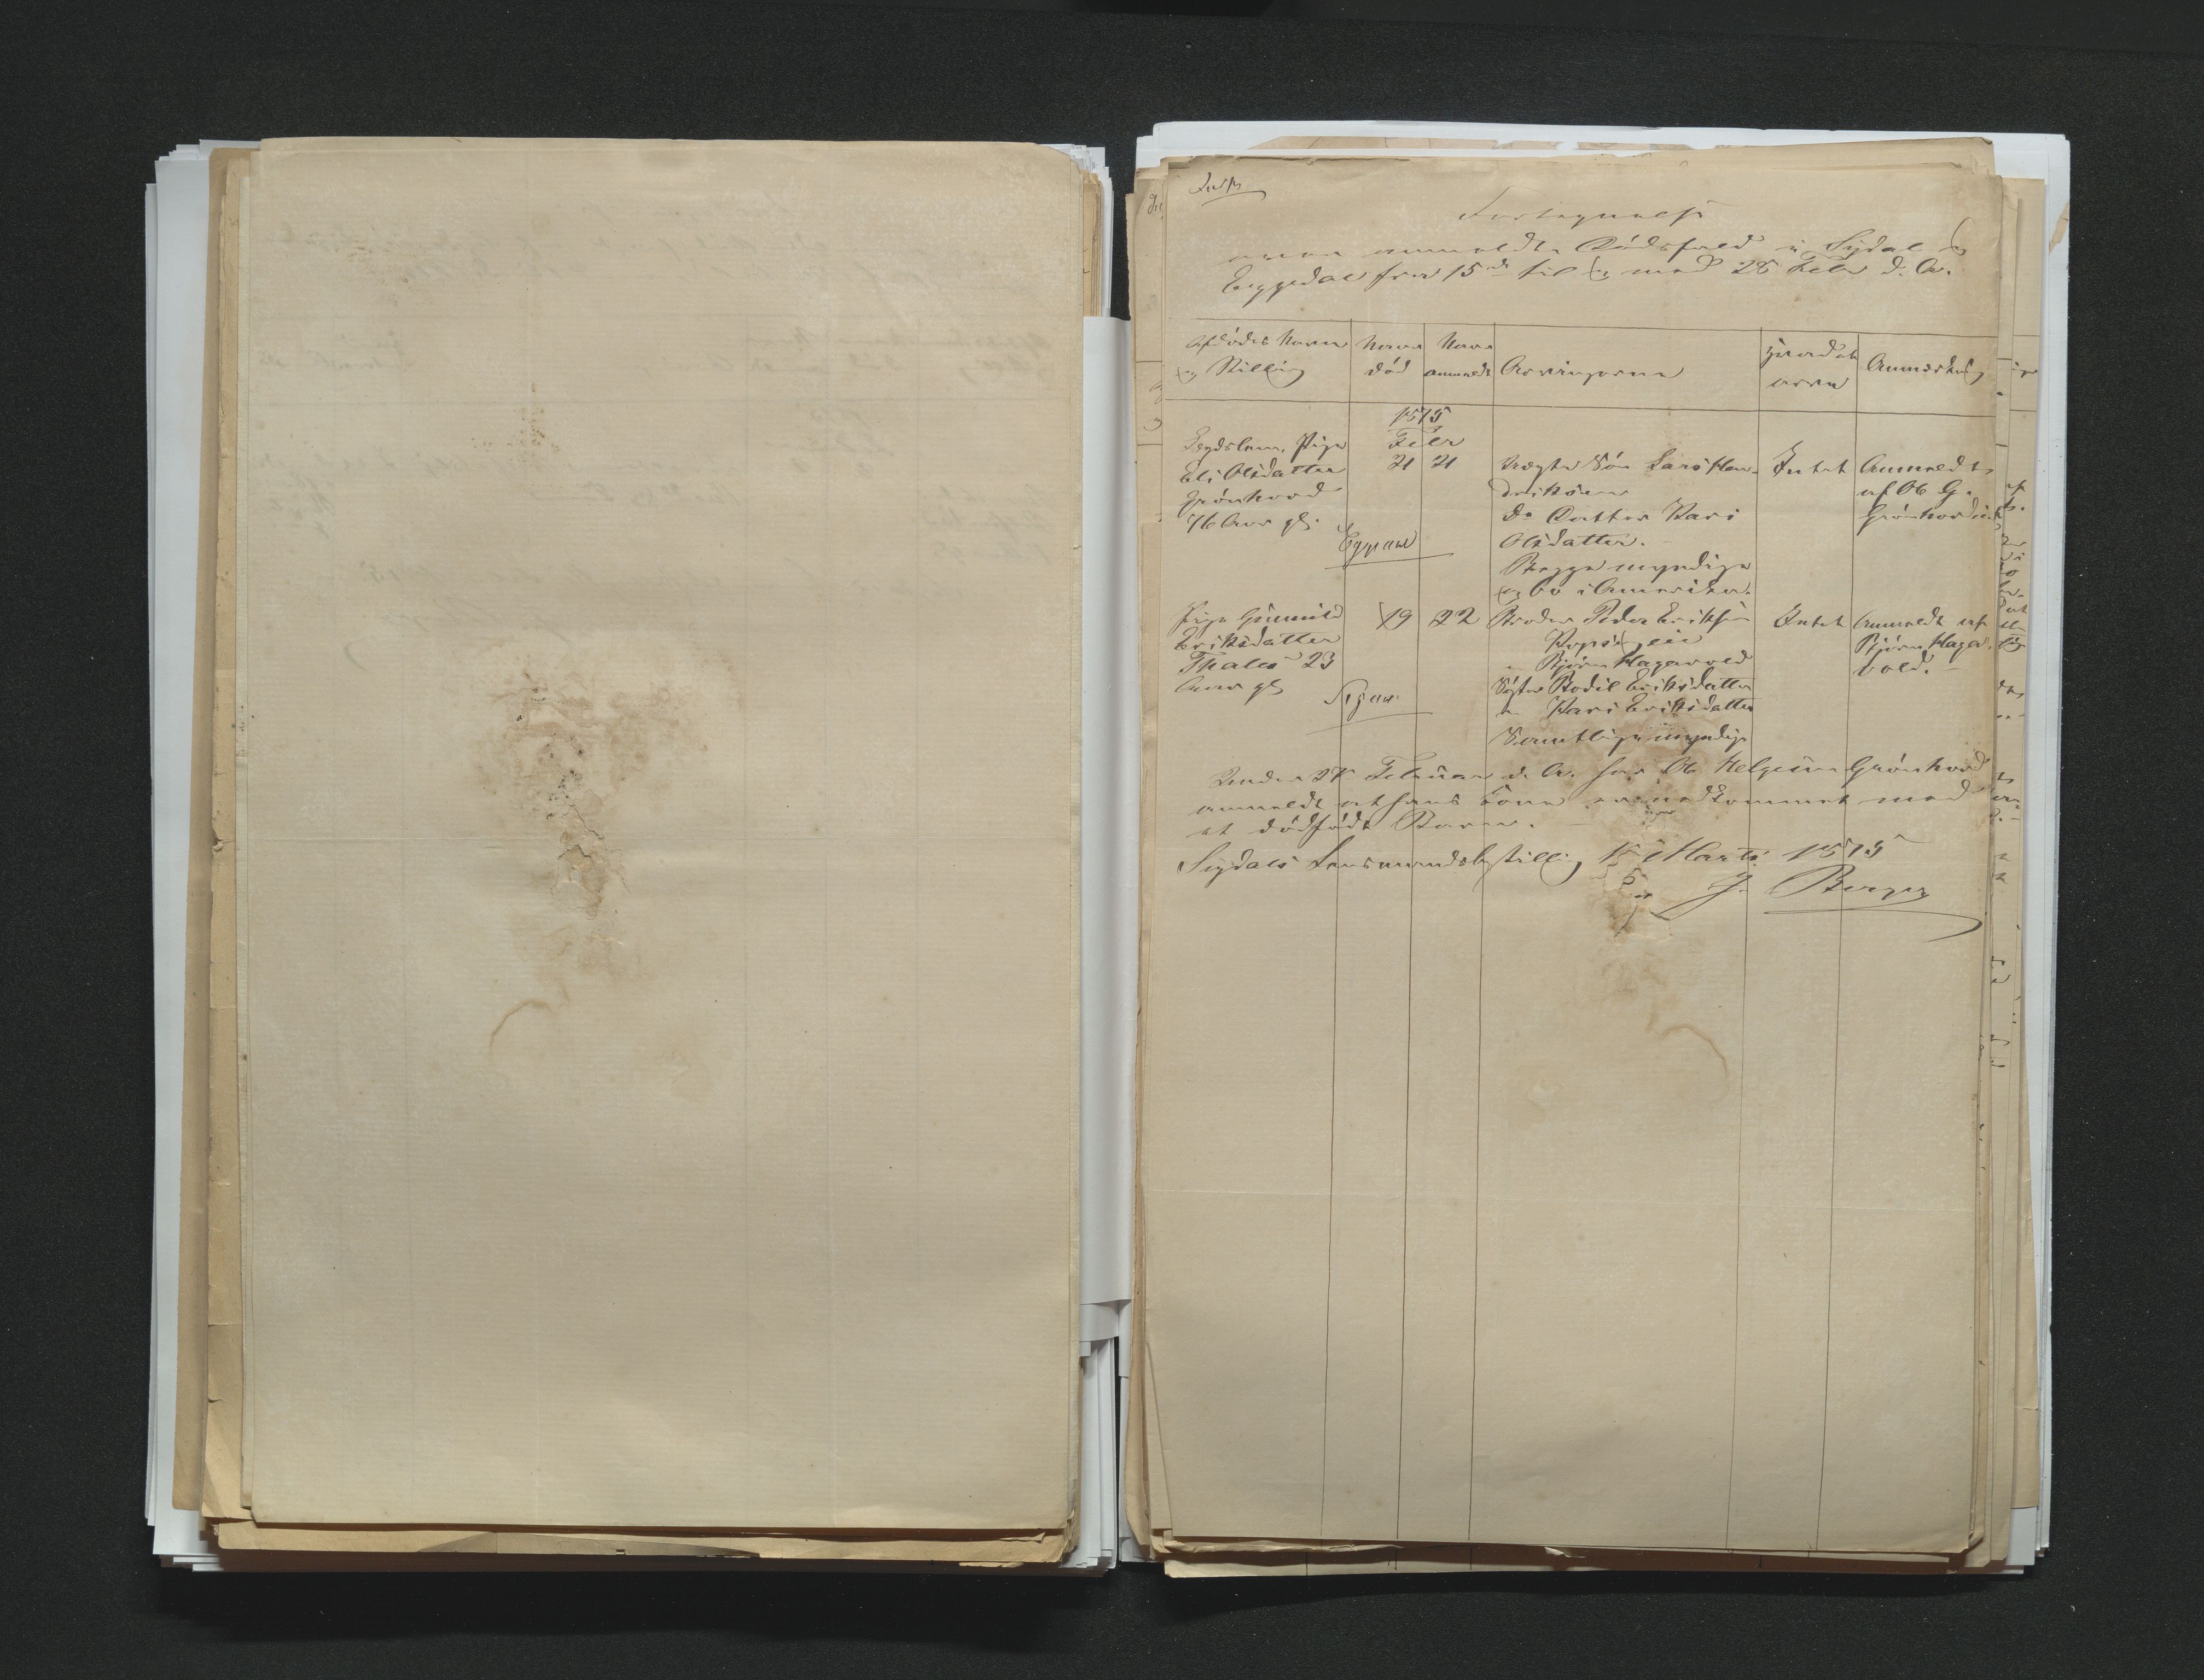 Fortegnelse
over anmeldte Dødsfald i Sigdal og
Eggedal fra 15de til og med 28 Febr d. A.
Afdødes Navn
og Stilling
Naar
død
Naar
anmeldt
Arvingerne
Hvad at
arve
Anmærkning
1875
Febr
Legdslem, Pige
Eli Olsdatter
Grønhovd
76 Aar gl.
Eggedal
21
21
uægte Søn Lars Hen-
driksen
do Datter Kari
Olsdatter.
Begge myndige
og bo i Amerika.
Intet
Anmeldt
af Ob G.
Grønhovd
Pige Gunnild
Eriksdatter
23
Aar gl
19
22
Broder Peder Eriksen
" Bjørn Hagavold
Søster Bodil Eriksdatter
" Kari Eriksdatter
Samtlige myndige
Intet
Anmeldt af
Bjørn Haga-
vold.
Under 27 Februar d. A. har Ob Helgesen Grønhovd
anmeldt at hans Kone er nedkommet med
et dødfødt Barn.
Sigdals Lensmandsbestilling 1 Marts 1875
Berger